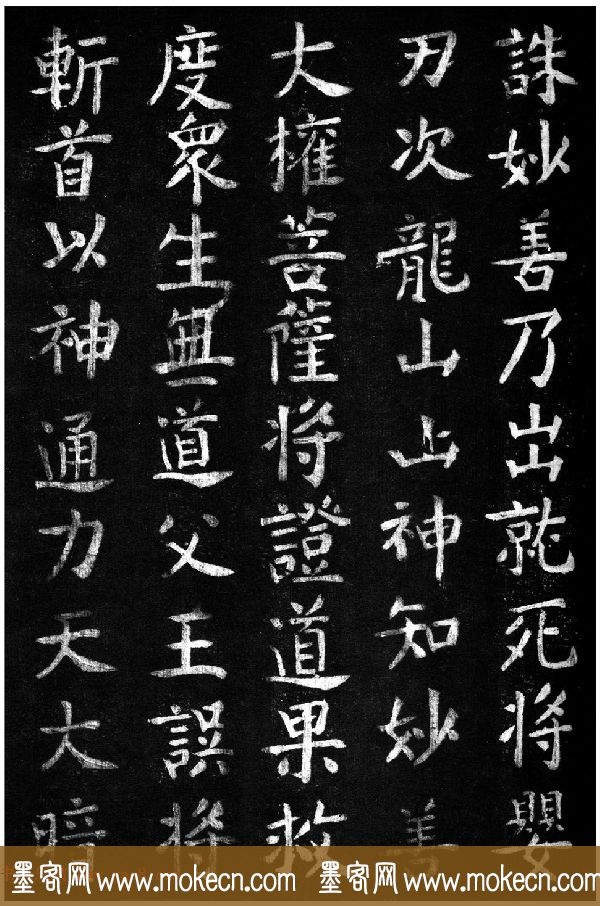 誅妙善乃出就死将嬰
刃次龍山山神知妙善
大權菩薩将證道果救
度衆生無道父王誤将
斬首以神通力天大暗
墨客网 www.mokecn.com 墨客网 www.mokecn.com